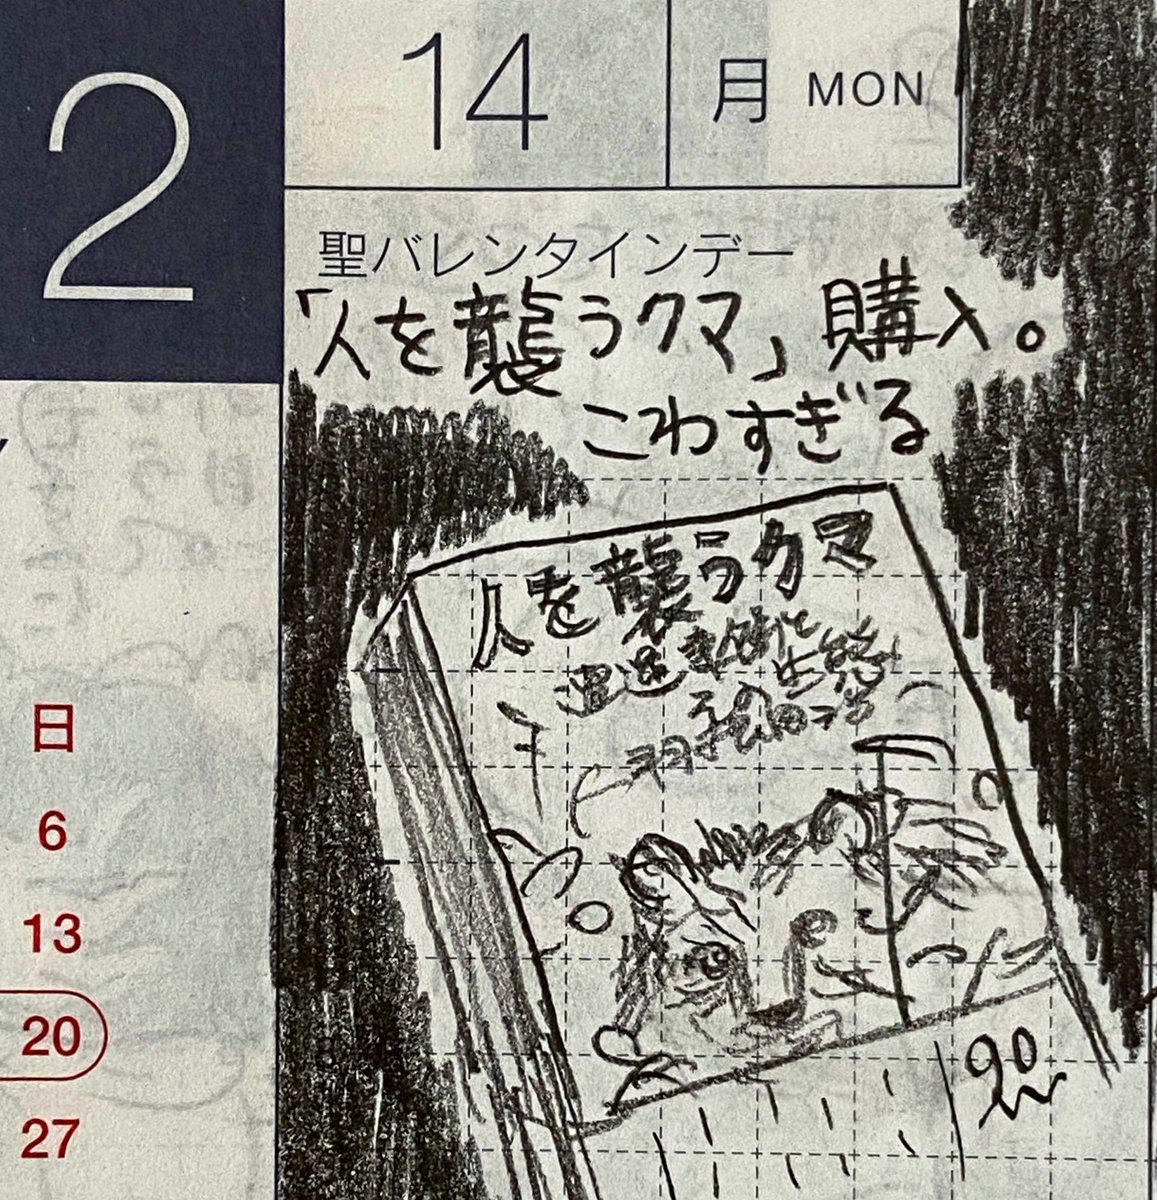 2
14
月 MON
聖バレンタインデー
「人を襲うクマ」購入。
こわすぎる
人を襲うクマ
遭遇事例と
生態
日
6
13
20
27